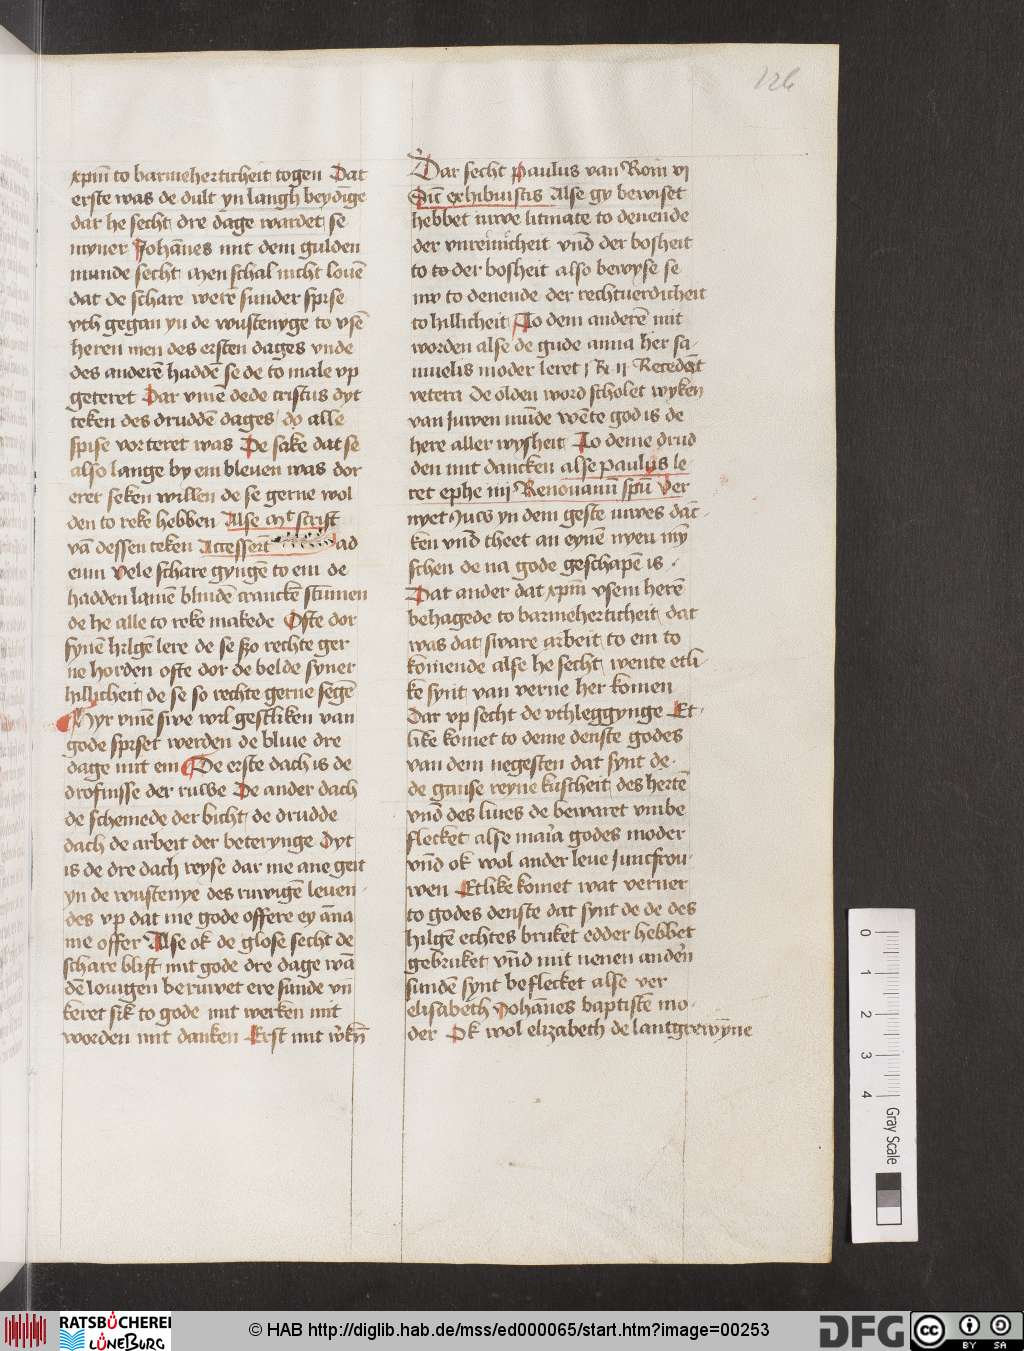 126
xpm̄ to barmeherticheit togen Dat
erste was de dult yn langh beydīge
dar he secht dre dage wardet se
myner Johānes mit dem gulden
munde secht Men schal nicht louē
dat de schare werē sunder spise
vth gegan yn de wustenyge to vsē
heren men des ersten dages vnde
des anderē haddē se de to male vp
geteret Dar vme dede cristus dyt
teken des druddē dages do alle
spise vorteret was De sake dat se
also lange by em bleuen was dor
erer seken willen de se gerne wol
den to reke hebben Alse M͛ scrift
vā dessen teken Accesserūt ad
eum vele schare gyngē to em de
hadden lamē blindē cranckē stūmen
de he alle to reke makede Ofte dor
synē hilgē lere de se so rechte ger
ne horden ofte dor de belde syner
hillicheit de se so rechte gerne segē
Hyr vmē siwe wil gestliken van
gode spiset werden de bliue dre
dage mit em De erste dach is de
drofnisse der ruwe De ander dach
de schemede der bicht de drudde
dach de arbeit der beterynge Dyt
is de dre dach reyse dar me ane geit
yn de wustenye des ruwigē leuen
des vp dat me gode offere ey āna
me offer Alse ok de glose secht de
schare blift mit gode dre dage wā
dē louigen beruwet ere sunde vn̄
keret sik to gode mit werken mit
worden mit danken Erst mit w̄kn̄
Dar secht Paulus van Rom vi
Sic̄ exhibuistis Alse gy bewiset
hebbet iuwe litmate to denende
der vnreinicheit vnd der bosheit
to to der bosheit also bewyse se
nw to denende der rechtuerdicheit
to hillicheit To dem anderē mit
worden alse de gude anna her sa
muelis moder leret i R ii Recedāt
vetera De olden word scholet wyken
van juwen mūde wēte god is de
here aller wysheit To deme drud
den mit dancken alse paulus le
ret ephe iiii Renouamī spū Ver
nyet Juw yn dem geste iuwes dāt
ken vn̄d theet an eynē nyen my
schen de na gode geschapē is
Dat ander dat xpm̄ vsem herē
behagede to barmeherticheit dat
was dat sware arbeit to em to
komende alse he secht wente etli
ke synt van verne her komen
Dar vp secht de vthleggynge Et
like komet to deme denste godes
van dem negesten dat synt de
de ganse reyne kuscheit des hertē
vn̄d des liues de bewaret vmbe
flecket alse maria godes moder
vn̄d ok wol ander leue Juncfrou
wen Etlike komet wat verner
to godes denste dat synt de de des
hilgē echtes bruket edder hebbet
gebruket vn̄d mit nenen andern
sundē synt beflecket alse ver
elisabeth Johānes baptistē mo
der Ok wol elizabeth de lantgrewȳne
0
1
2
3
4
Gray Scale
RATSBÜCHEREI
LÜNEBURG
© HAB http://diglib.hab.de/mss/ed000065/start.htm?image=00253
DFG
cc
BY SA